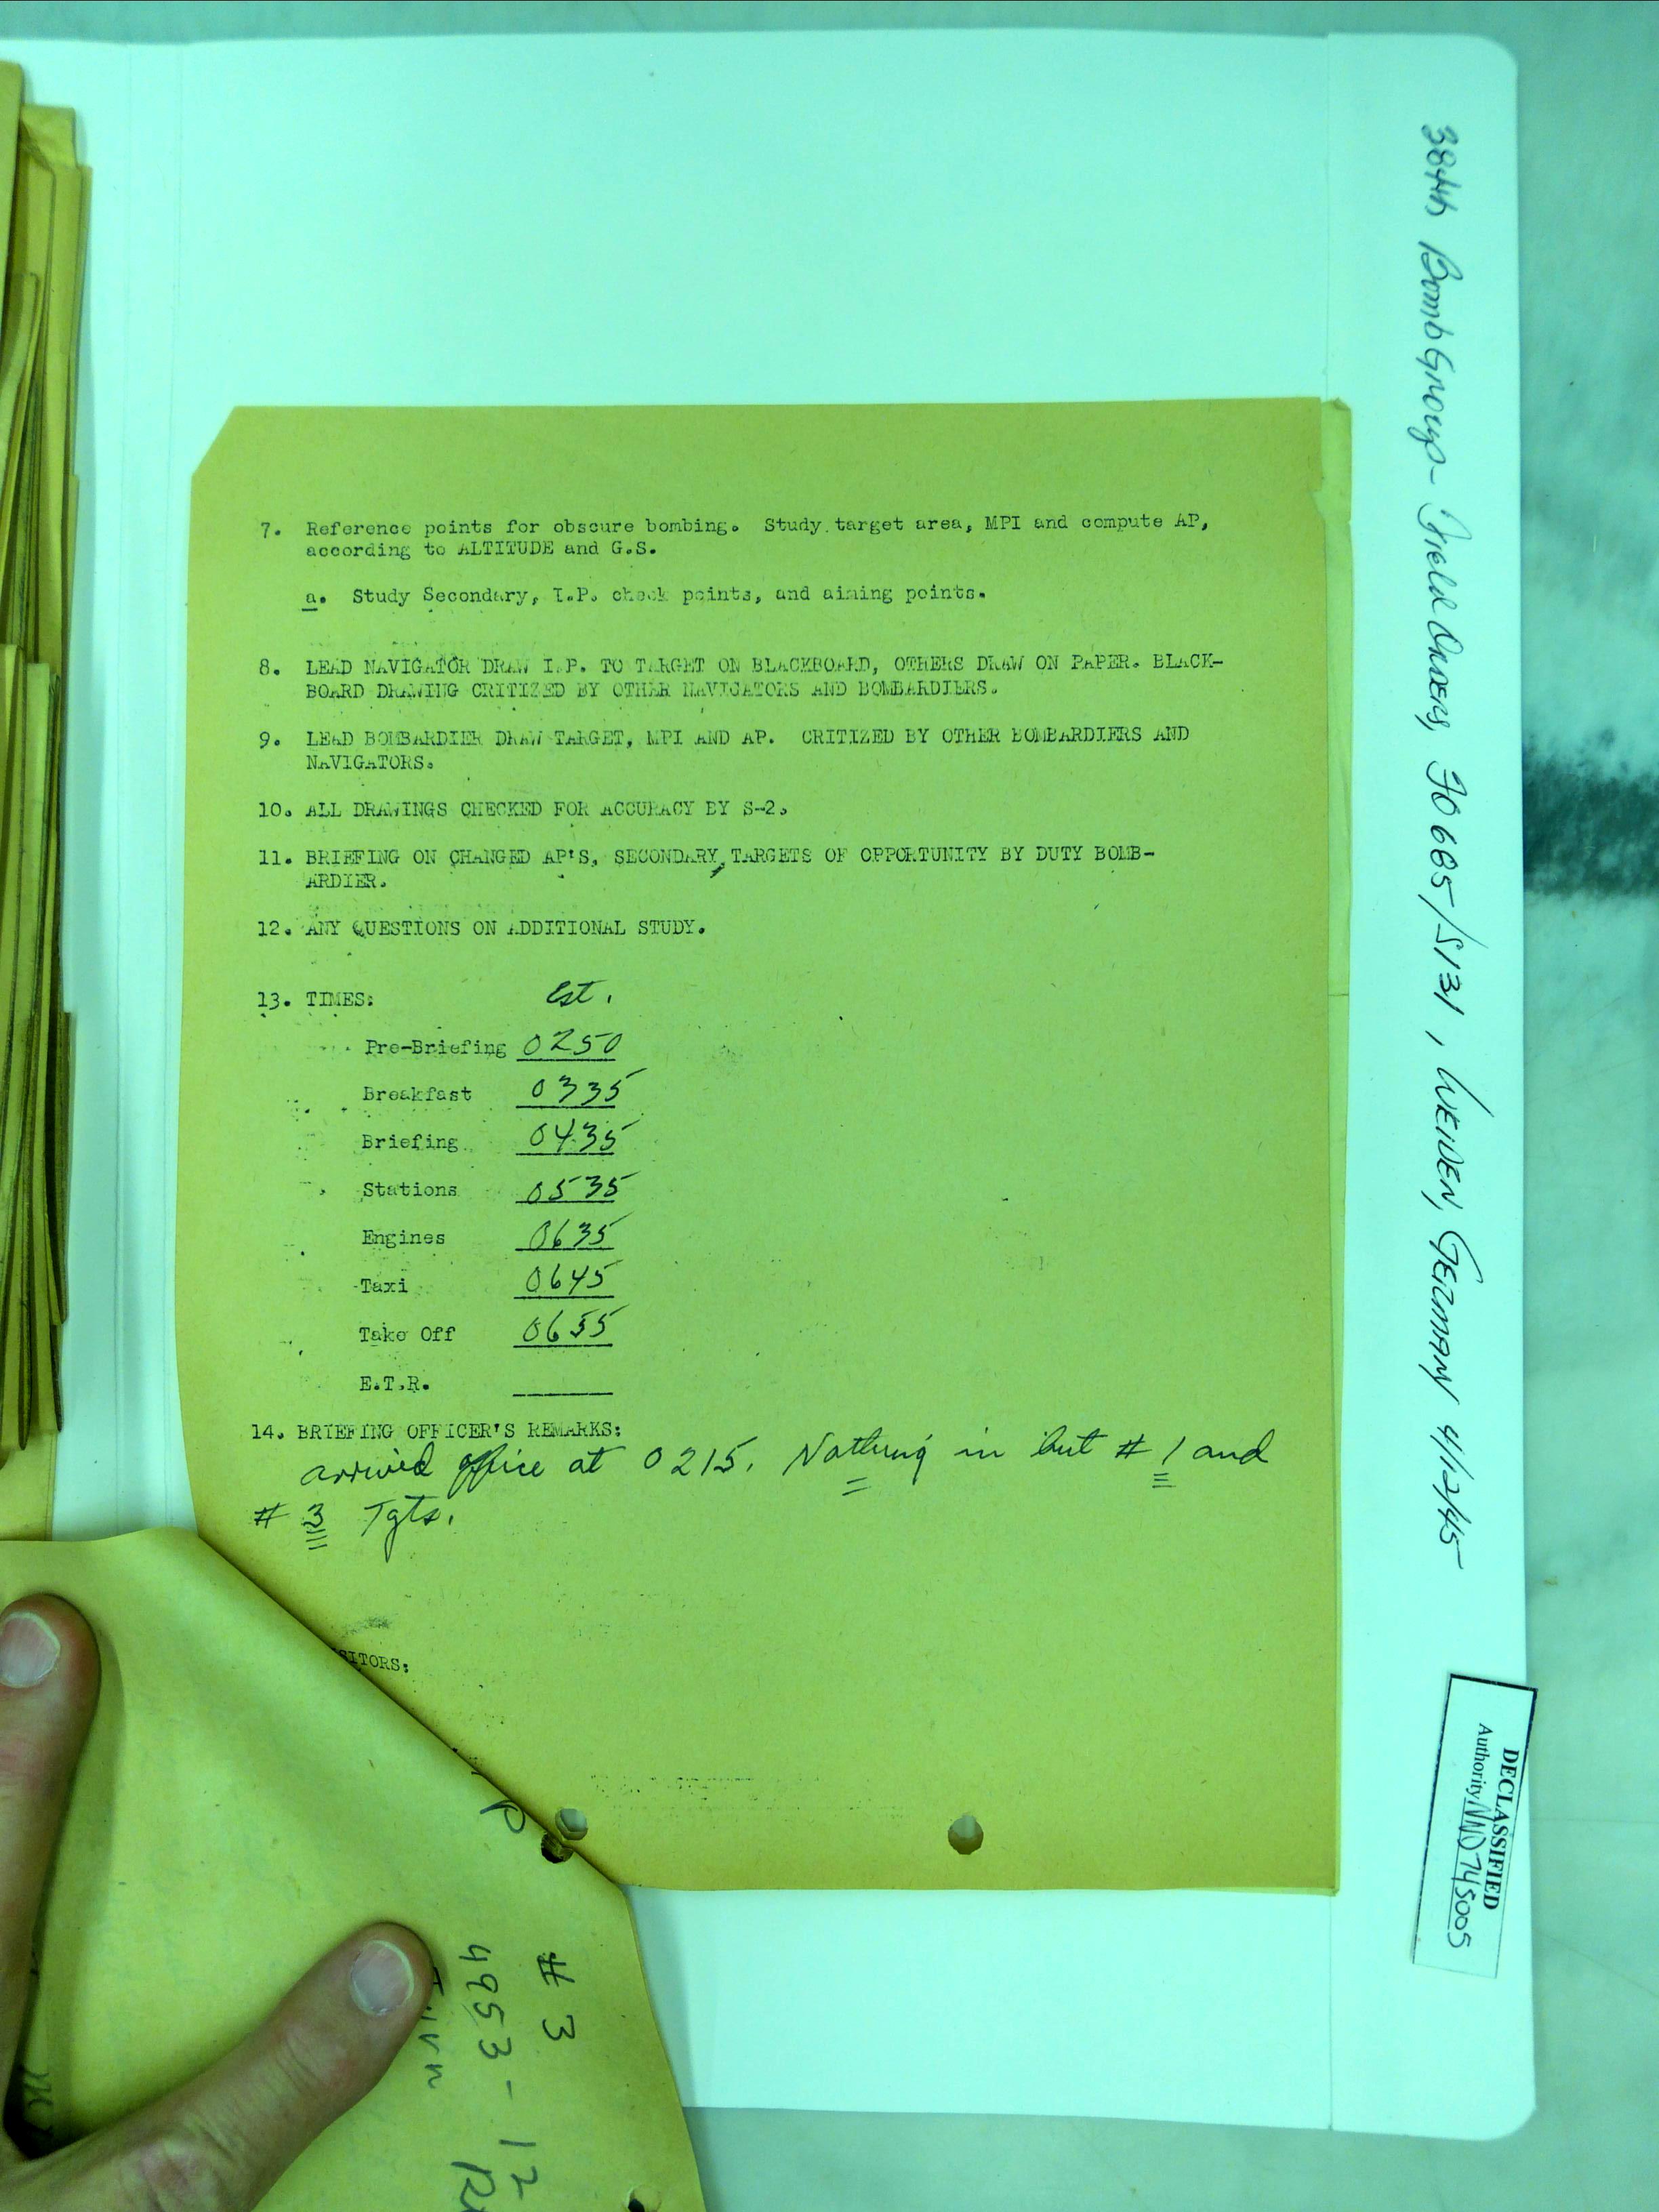 7. Reference points for obscure bombing. Study target area, MPI and compute AP,
according to ALTITUDE and G.S.
a. Study Secondary, I.P. check points, and aiming points.
8. LEAD NAVIGATOR DRAW I.P. TO TARGET ON BLACKBOARD, OTHERS DRAW ON PAPER. BLACK-
BOARD DRAWING CRITIZED BY OTHER NAVIGATORS AND BOMBARDIERS.
9. LEAD BOMBARDIER DRAW TARGET, MPI AND AP. CRITIZED BY OTHER BOMBARDIERS AND
NAVIGATORS.
10. ALL DRAWINGS CHECKED FOR ACCURACY BY S-2.
11. BRIEFING ON CHANGED AP'S, SECONDARY, TARGETS OF OPPORTUNITY BY DUTY BOMB-
ARDIER.
12. ANY QUESTIONS ON ADDITIONAL STUDY.
13. TIMES: Est.
Pre-Briefing 0250
Breakfast 0335
Briefing 0435
Stations 0535
Engines 0635
Taxi 0645
Take Off 0655
E.T.R.
14. BRIEFING OFFICER'S REMARKS:
arrived office at 0215. Nothing in but # 1 and
# 3 Tgts.
SITORS:
# 3
4953 - 12
384th Bomb Group - Field Orders, FO 665/S131, WEIDEN, GERMANY 4/12/45
DECLASSIFIED
Authority NND 745005